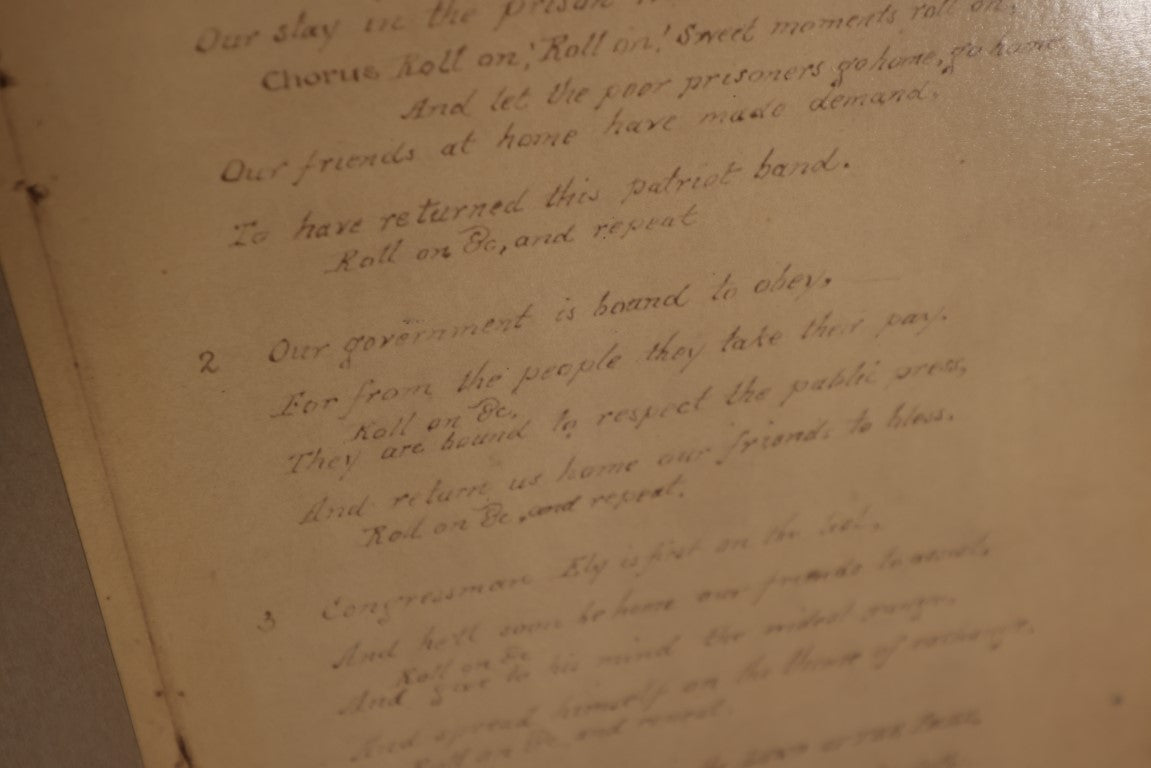 Our stay in the prison
Chorus Roll on! Roll on! Sweet moments roll on,
And let the poor prisoners go home, go home.
Our friends at home have made demand,
To have returned this patriot band.
Roll on &c, and repeat
2 Our government is bound to obey,
For from the people they take their pay.
Roll on &c.
They are bound to respect the public press,
And return us home our friends to bless.
Roll on &c, and repeat.
3 Congressman Ely is first on the list,
And he'll soon be home our friends to assist,
Roll on &c
And give to his mind the widest range,
And spread himself on the theme of exchange.
Roll on &c, and repeat.